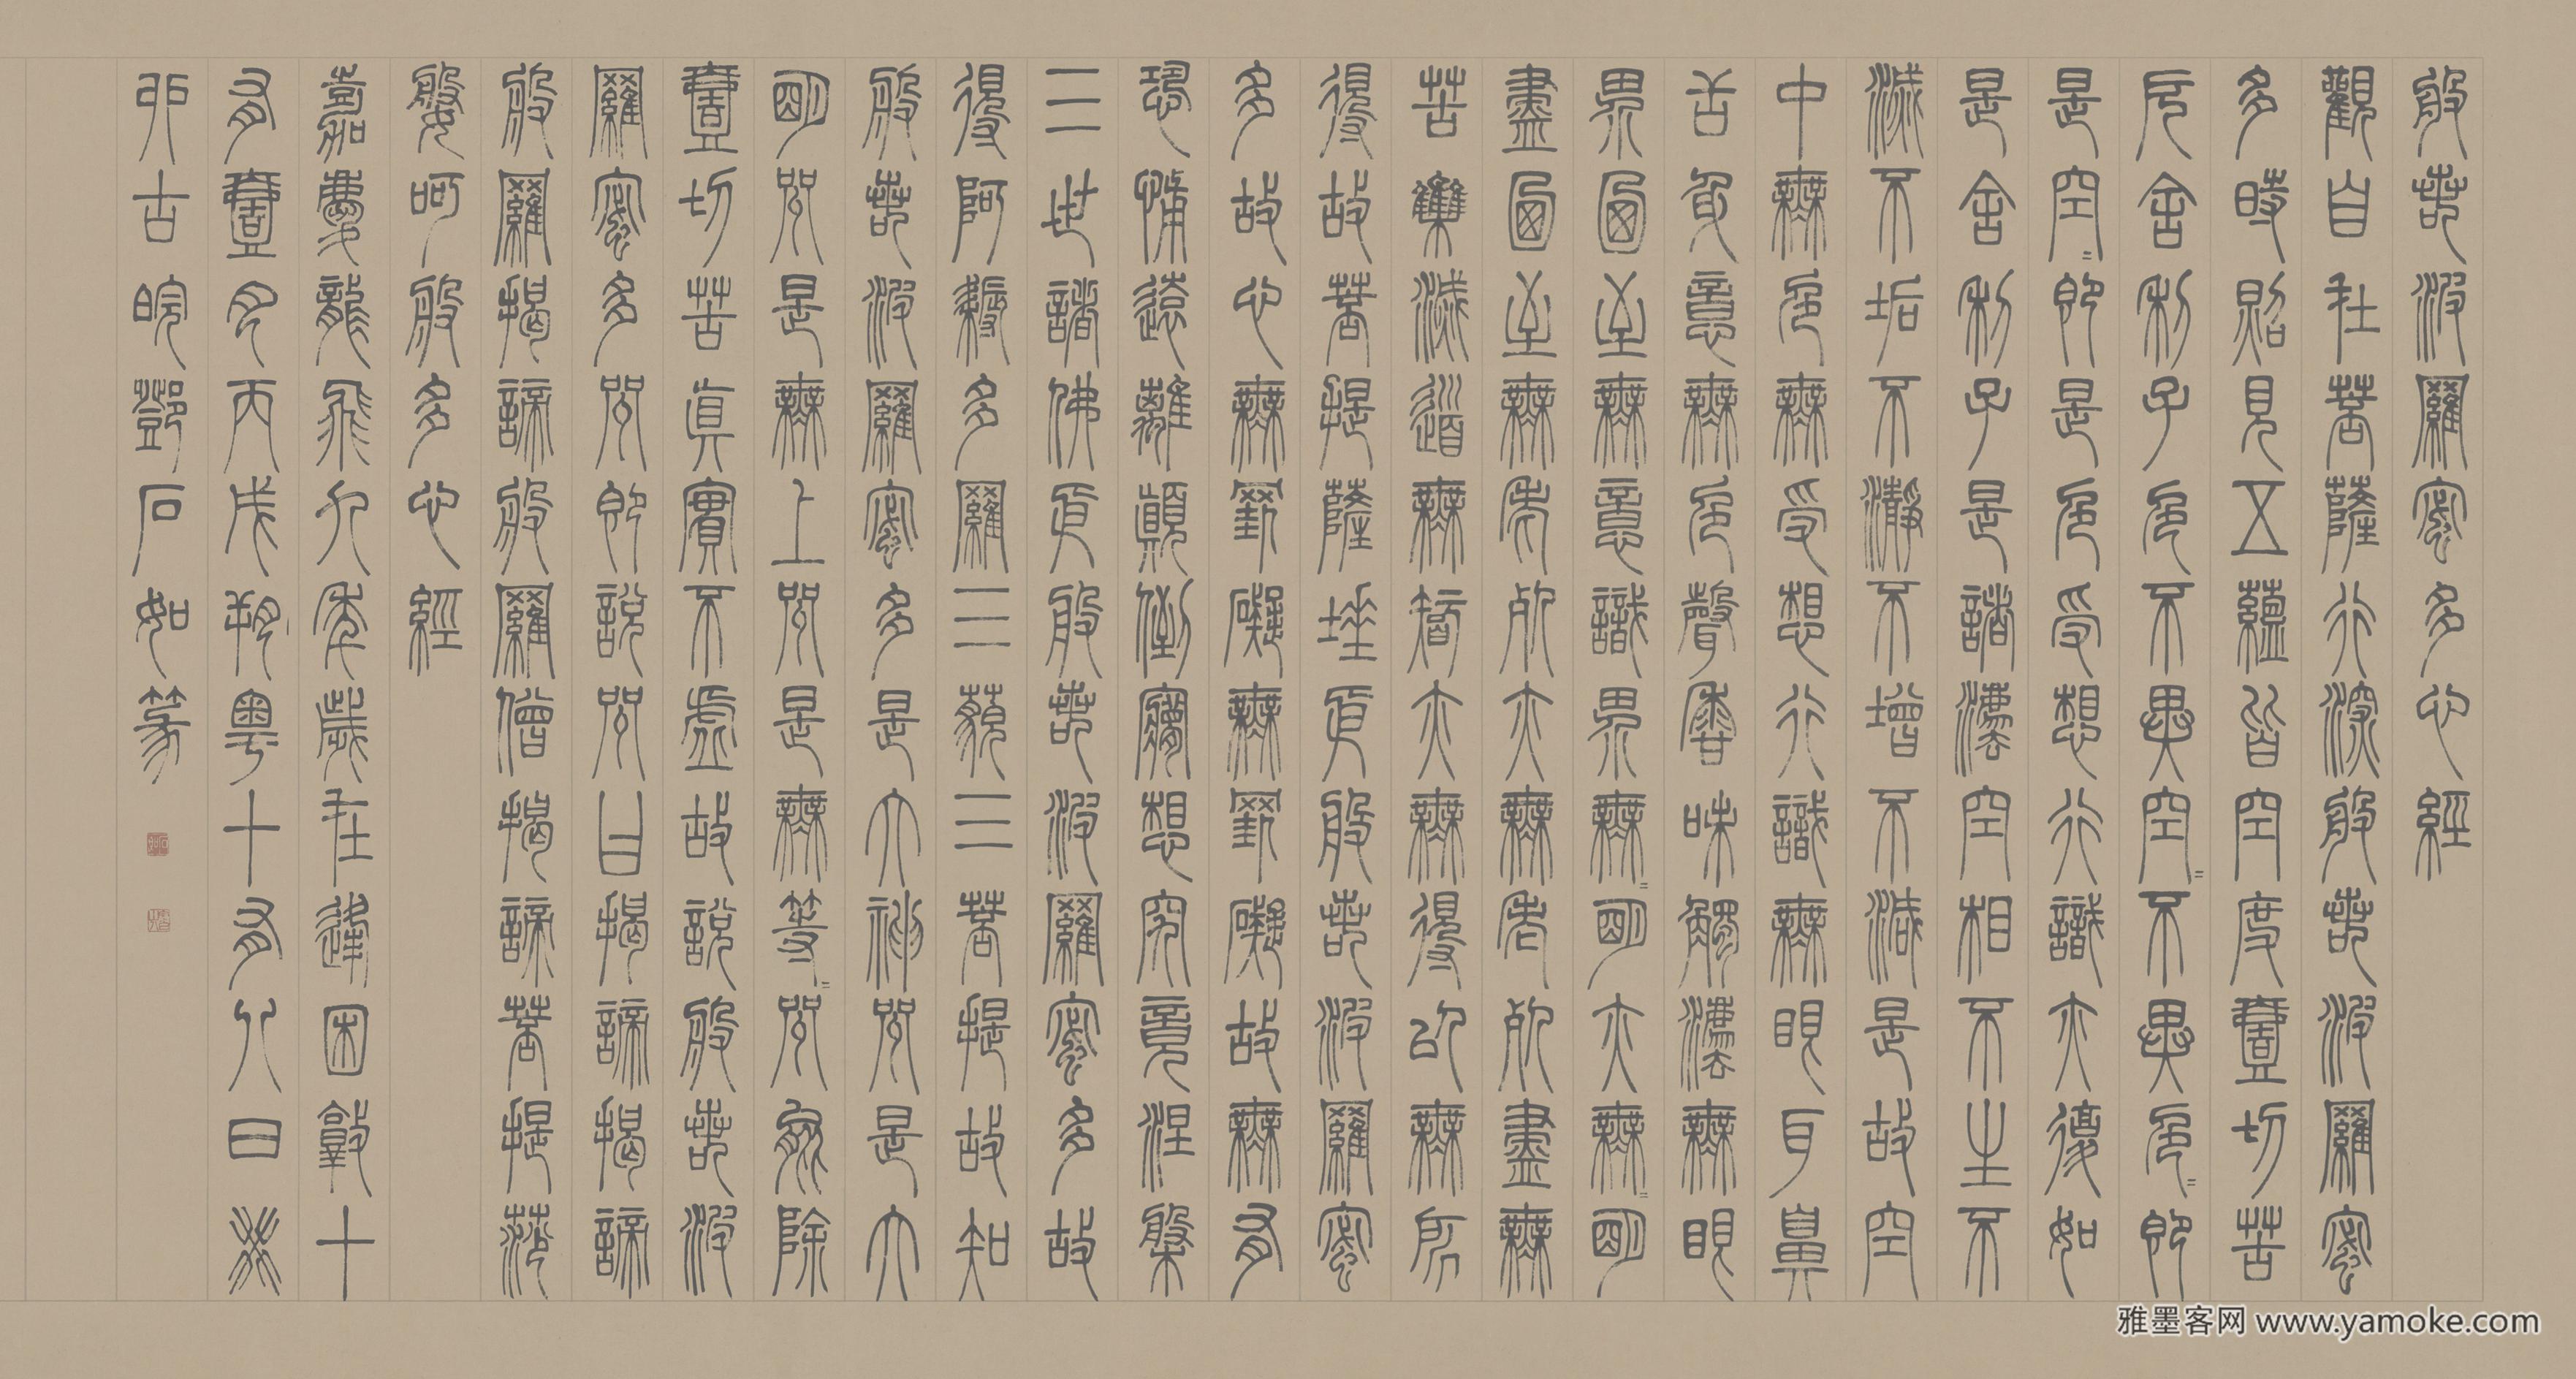 般若波羅蜜多心經
觀自在菩薩行深般若波羅蜜
多時照見五蘊皆空度壹切苦
厄舍利子色不異空=不異色=即
是空=即是色受想行識亦復如
是舍利子是諸法空相不生不
滅不垢不瀞不增不減是故空
中無色無受想行識無眼耳鼻
舌身意無色聲香味觸法無眼
界卥至無意識界無=明亦無=明
盡卥至無老死亦無老死盡無
苦集滅道無智亦無得以無所
得故菩提薩埵依般若波羅蜜
多故心無罣礙無罣礙故無有
恐怖遠離顛倒夢想究竟涅槃
三世諸佛依般若波羅蜜多故
得阿耨多羅三藐三菩提故知
般若波羅蜜多是大神咒是大
明咒是無上咒是無等=咒能除
壹切苦真實不虛故說般若波
羅蜜多咒即說咒曰揭諦揭諦
般羅揭諦般羅僧揭諦菩提薩
婆呵般多心經
嘉慶龍飛九年歲在逢困敦十
有壹月丙戌朔粵十有八日癸
卯古皖鄧石如篆
雅墨客网 www.yamoke.com